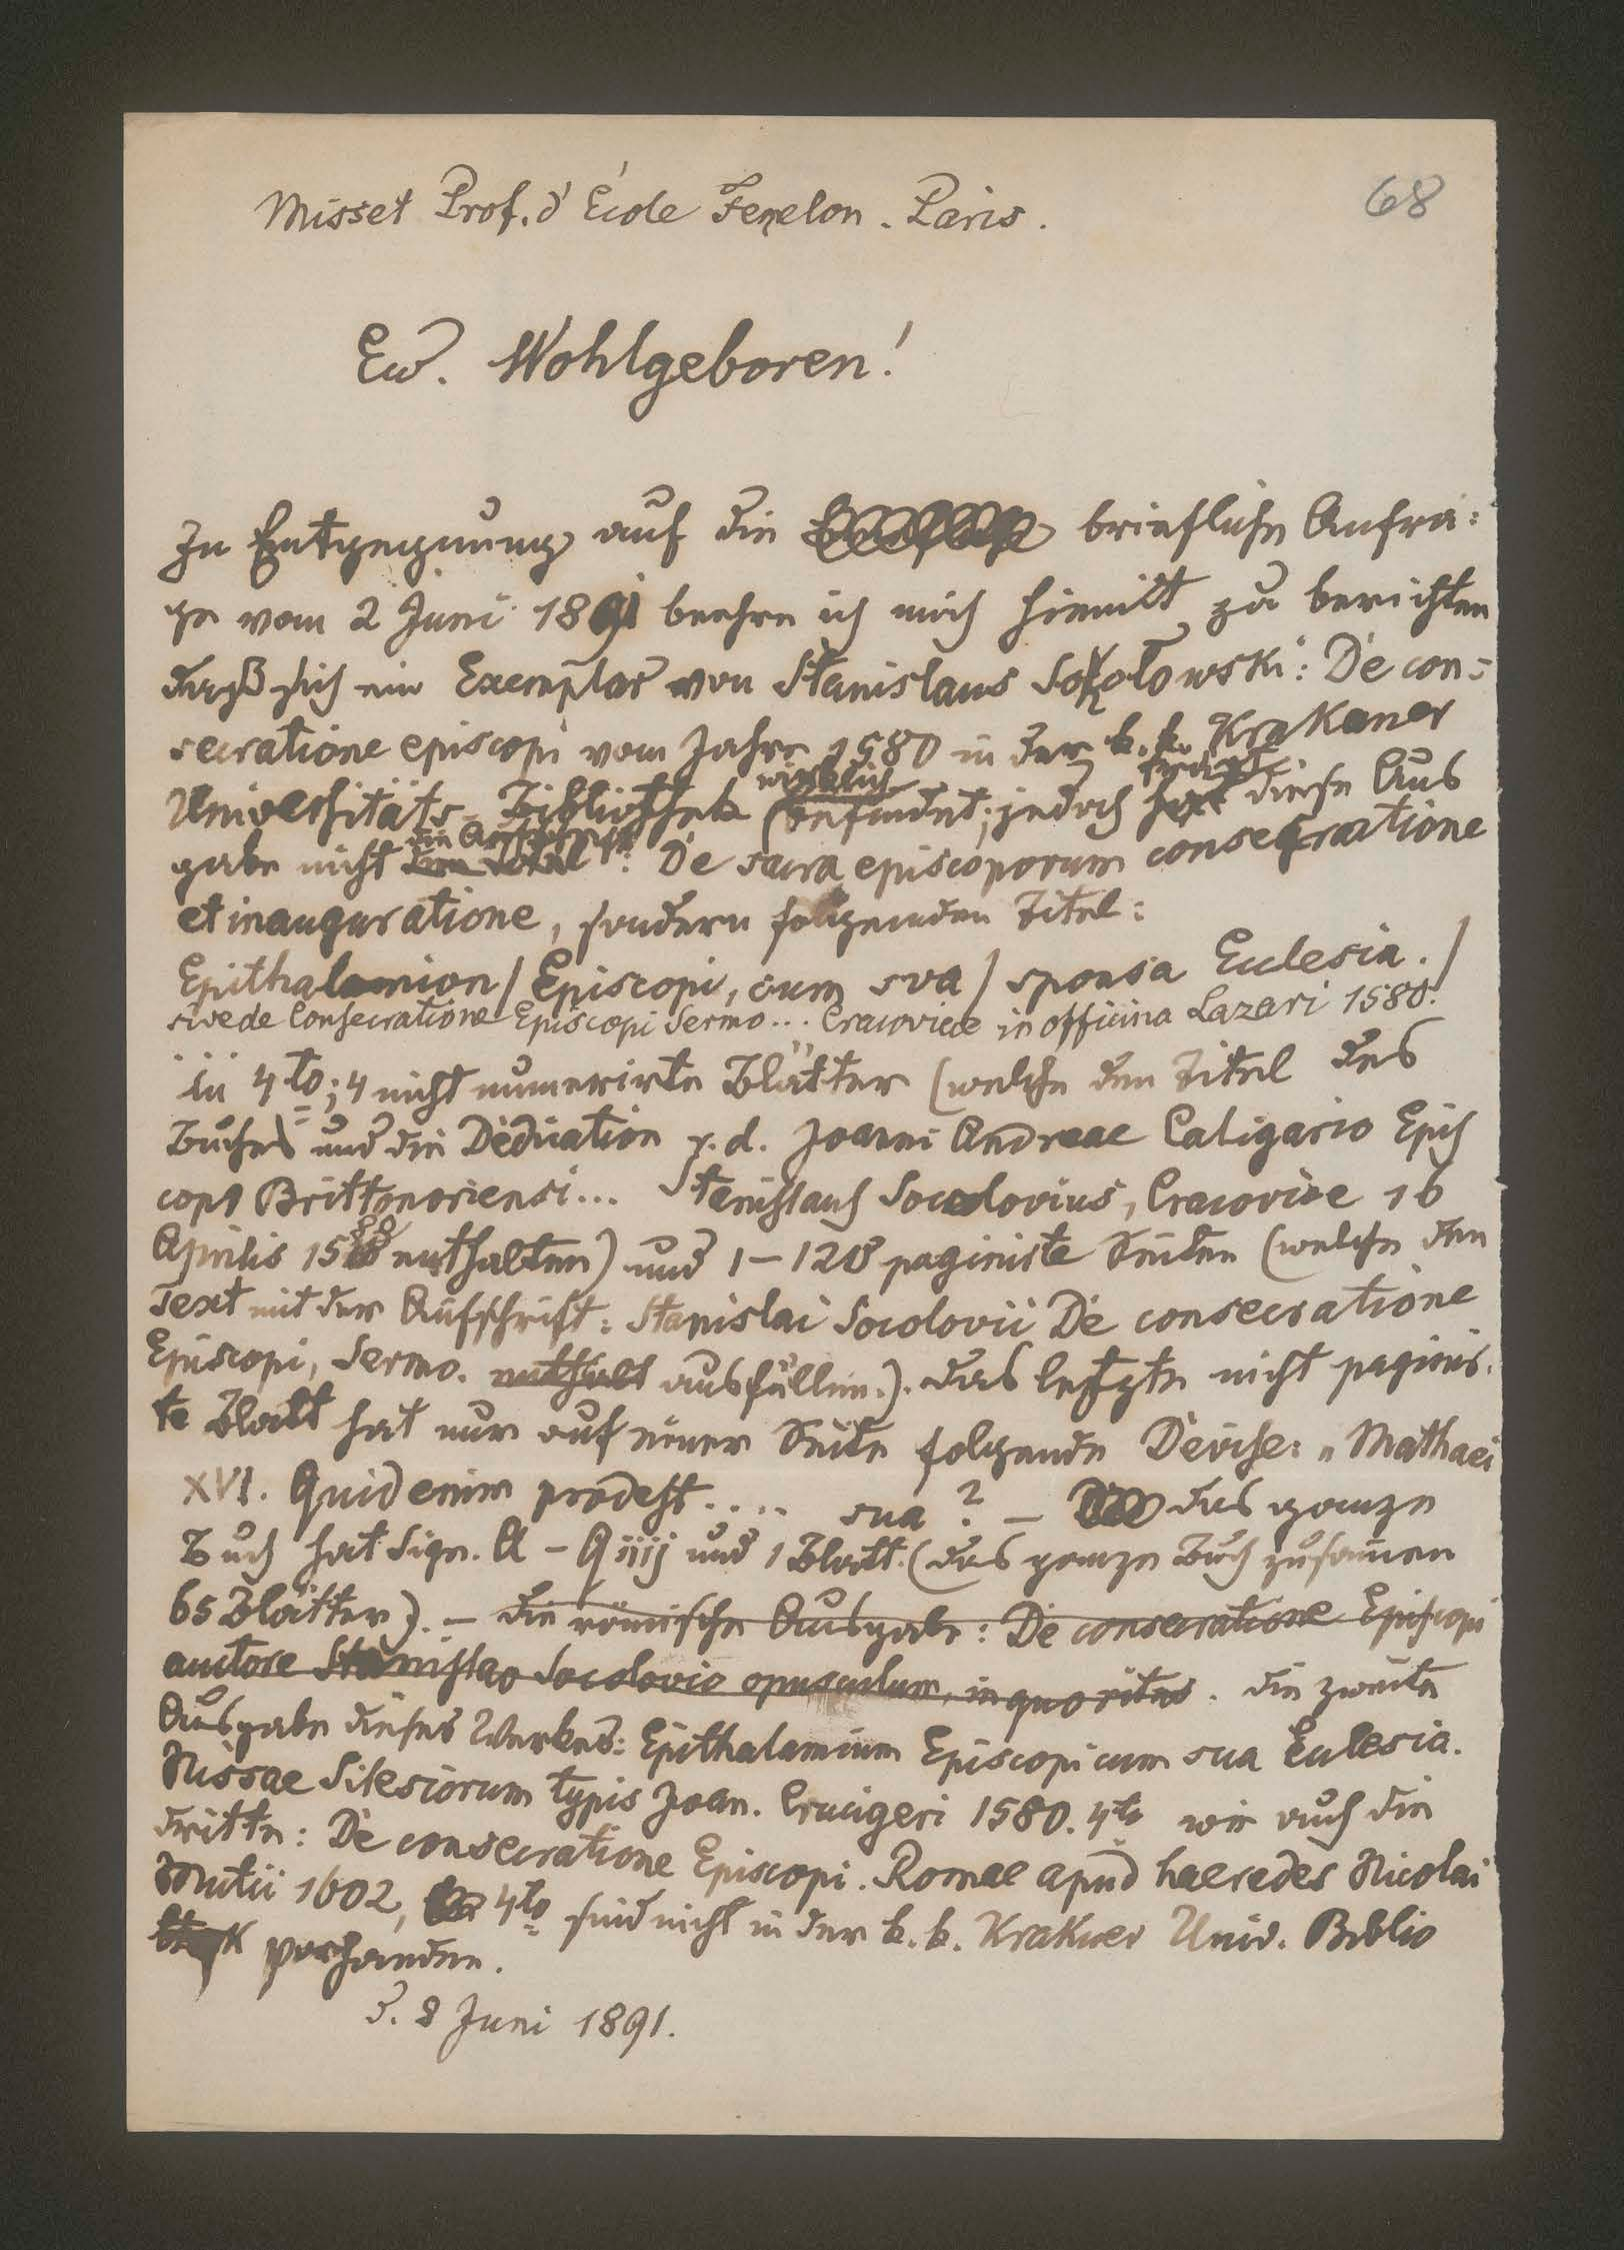 Misset Prof. d' École Fenelon. Paris.
68
Ew. Wohlgeboren!
In Entgegnung auf die briefliche Anfra:
ge vom 2 Juni 1891 beehre ich mich hiemit zu berichten
daß sich ein Exemplar von Stanislaus Sokołowski: De con:
secratione episcopi vom Jahre 1580 in der k. k. Krakauer
Universitäts-Bibliothek wirklich befindet; jedoch diese Aus
gabe nicht die Aufschrift: De sacra episcoporum consecratione
et inauguratione, sondern folgenden Titel:
Epithalamion / Episcopi, cum sva / sponsa Ecclesia. /
sive de Consecratione Episcopi Sermo... Cracoviae in officina Lazari 1580.
in 4to; 4 nicht numerirte Blätter (welche den Titel des
Buches und die Dedication r. d. Joanni Andreae Caligario Epis
copo Brittonoriensi... Stanislaus Socolovius, Cracoviae 16
Aprilis 1580 enthalten) und 1-120 paginirte Seiten (welche den
Text mit der Aufschrift: Stanislai Socolovii De consecratione
Episcopi, Sermo. enthält ausfüllen.). das letzte nicht paginir.
te Blatt hat nur auf einer Seite folgende Devise: „Mathaei
XVI. Quid enim prodest.... sua? - das ganze
Buch hat Sign. A - Qiiij und 1 Blatt. (das ganze Buch zusamen
65 Blätter). - die römische Ausgabe: De consecratione Episcopi
auctore Stanislao Socolovio opusculum, in quo ritus. die zweite
Ausgabe dieses Werkes: Epithalamium Episcopi cum sua Ecclesia.
Nissae Silesiorum typis Joan. Crucigeri 1580. 4to wie auch die
dritte: De consecratione Episcopi. Romae apud haeredes Nicolai
Mutii 1602, 4to sind nicht in der k. k. Krakuer Univ. Biblio
thek vorhanden.
d. 8 Juni 1891.